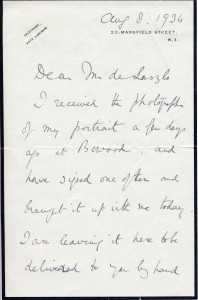 Aug 8. 1934
TELEPHONE,
33, MANSFIELD STREET,
W.1.
Dear Mr de Laszlo
I received the photographs
of my portrait a few days
ago at Bowood and
have signed one of them and
brought it up with me today.
I am leaving it here to be
delivered to you by hand